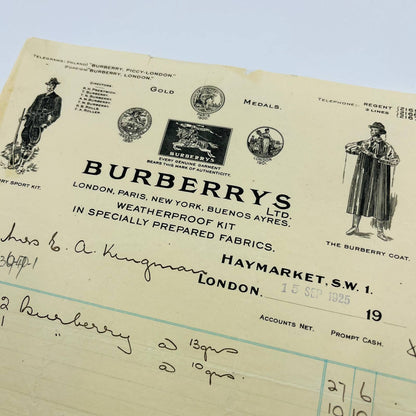 TELEGRAMS: INLAND: "BURBERRY, PICCY-LONDON."
FOREIGN: "BURBERRY, LONDON."
DIRECTORS
GOLD MEDALS.
TELEPHONE: REGENT
3 LINES
BURBERRYS
EVERY GENUINE GARMENT
BEARS THIS MARK OF AUTHENTICITY.
BURBERRYS
LTD.
LONDON, PARIS, NEW YORK, BUENOS AYRES.
WEATHERPROOF KIT
IN SPECIALLY PREPARED FABRICS.
SPORT KIT.
THE BURBERRY COAT.
A. Kingman
HAYMARKET, S.W. 1.
LONDON, 15 SEP 1925 19
ACCOUNTS NET. PROMPT CASH.
2 Burberry @ 13 gns 27 6
1 " @ 10 gns 10 10